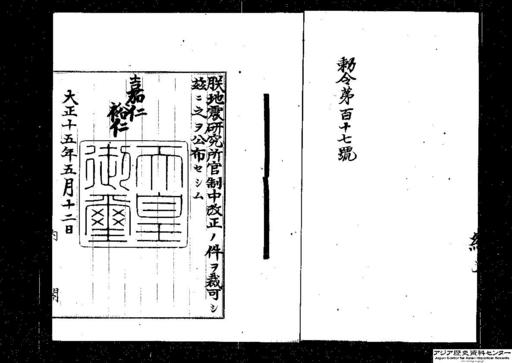 勅令第百十七號
朕地震硏究所官制中改正ノ件ヲ裁可シ
玆ニ之ヲ公布セシム
嘉仁
裕仁
天皇
御璽
大正十五年五月十二日
内閣
アジア歴史資料センター
Japan Center for Asian Historical Records